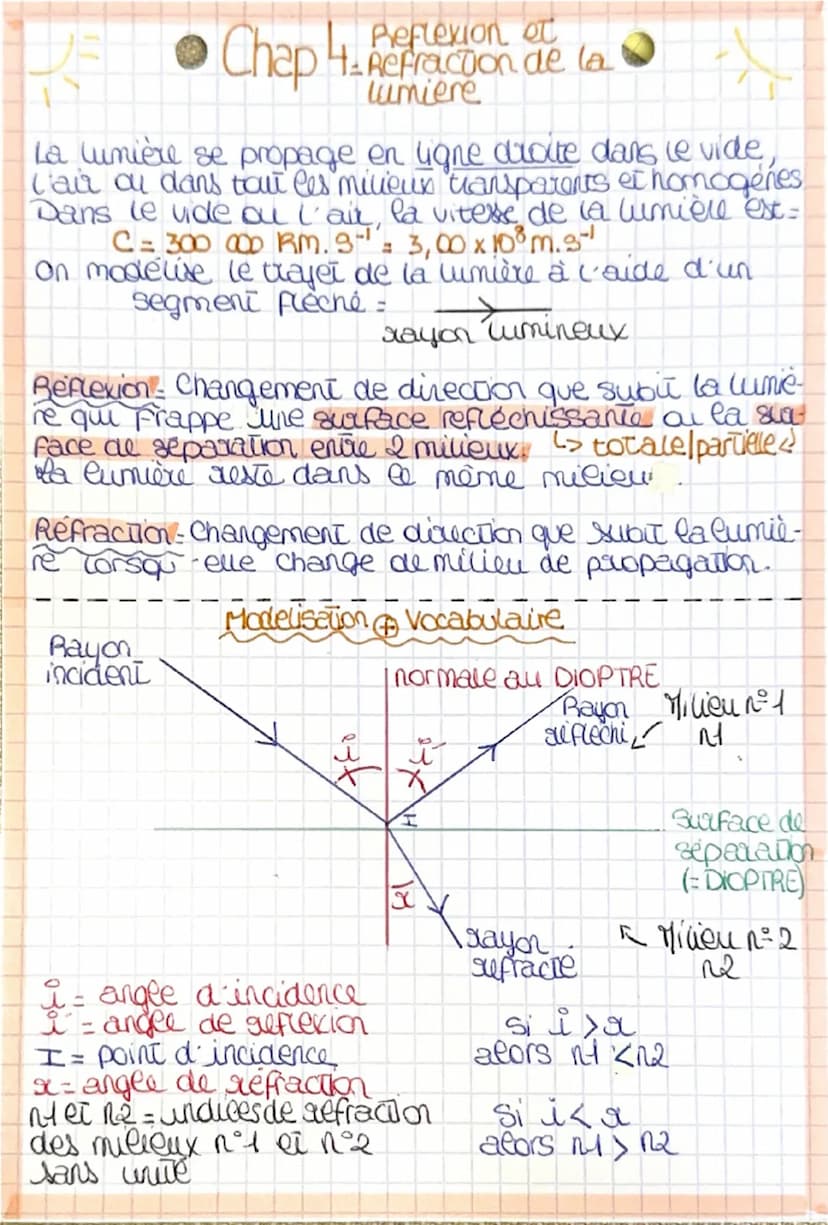 Chap 4: Réflexion et
Réfraction de la
lumière
La lumière se propage en ligne droite dans le vide,
l'air ou dans tout les milieux transparents et homogènes
Dans le vide ou l'air, la vitesse de la lumière est =
C = 300 000 Km.s⁻¹ = 3,00 x 10⁸ m.s⁻¹
On modélise le trajet de la lumière à l'aide d'un
segment fléché =
rayon lumineux
Réflexion = Changement de direction que subit la lumiè-
re qui frappe une surface refléchissante ou la sur-
face de séparation entre 2 milieux. ↳ totale/partielle
La lumière reste dans le même milieu
Réfraction = Changement de direction que subit la lumiè-
re lorsqu'elle change de milieu de propagation.
Modélisation + Vocabulaire
Rayon
incident
normale au DIOPTRE
Rayon
réfléchi
Milieu n°1
n1
i
i'
I
Surface de
séparation
(= DIOPTRE)
r
rayon
réfracté
Milieu n°2
n2
i = angle d'incidence
i' = angle de réflexion
I = point d'incidence
r = angle de réfraction
n1 et n2 = indices de réfraction
des milieux n°1 et n°2
sans unité
si i > r
alors n1 < n2
si i < r
alors n1 > n2